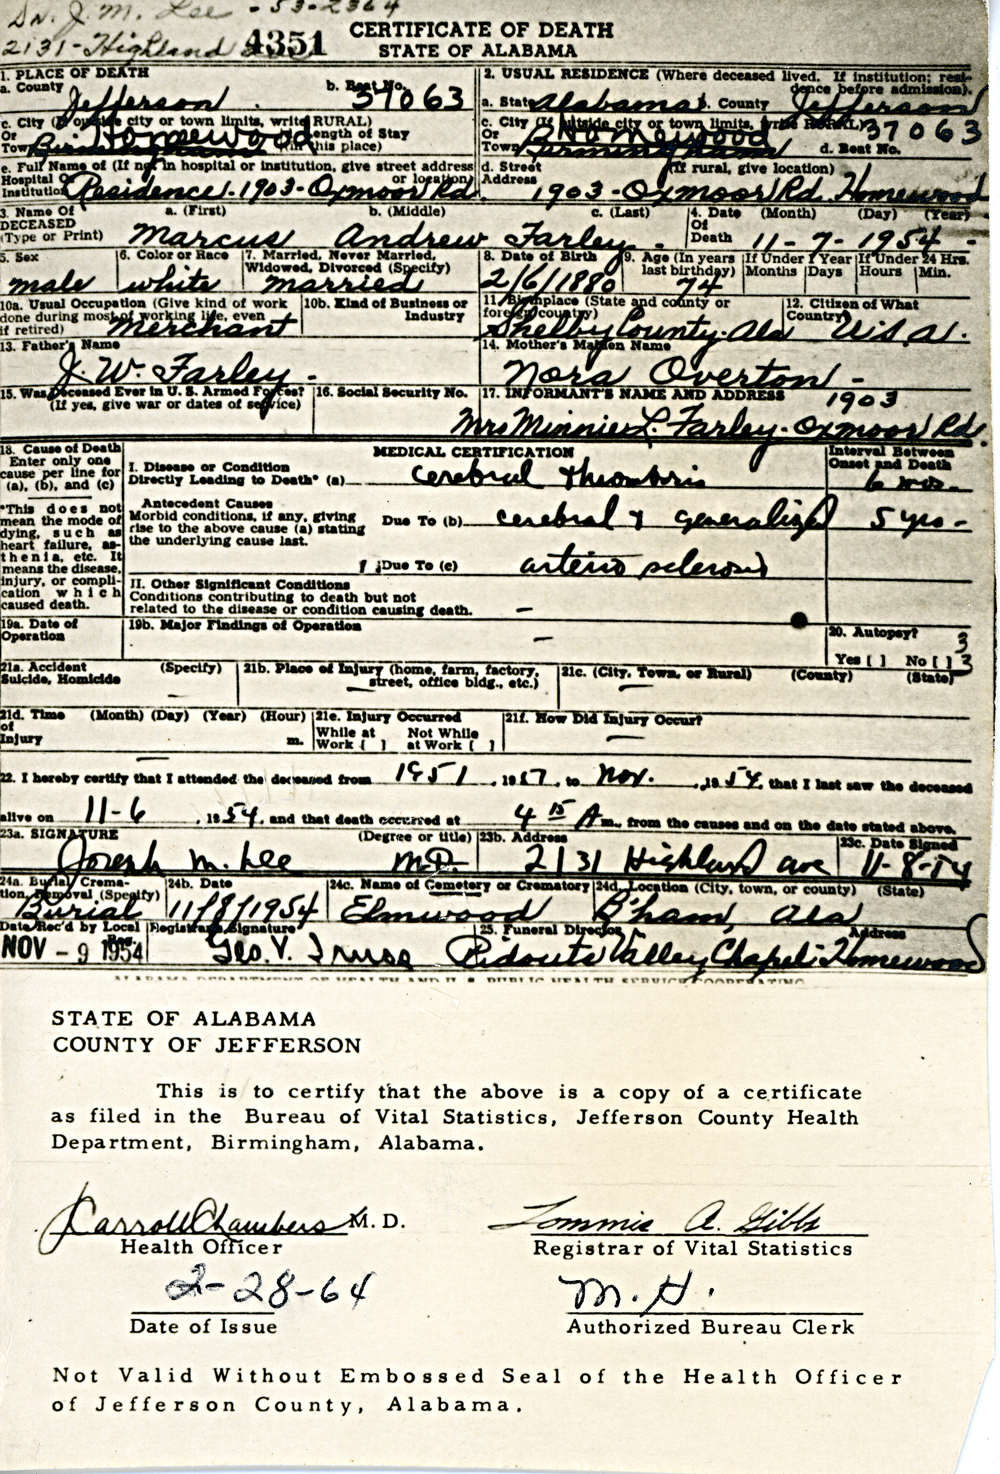 Dr. J. M. Lee - 53-2364
2131 - Highland
4351
CERTIFICATE OF DEATH
STATE OF ALABAMA
1. PLACE OF DEATH
a. County Jefferson b. Beat No. 37063
2. USUAL RESIDENCE (Where deceased lived. If institution; residence before admission).
a. State Alabama b. County Jefferson
c. City (If outside city or town limits, write RURAL) Or Town Birmingham Homewood Length of Stay (in this place)
c. City (If outside city or town limits, write RURAL) Or Town Birmingham Homewood d. Beat No. 37063
e. Full Name of (If not in hospital or institution, give street address or location) Hospital Or Institution Residence - 1903 - Oxmoor Rd.
d. Street Address (If rural, give location) 1903 - Oxmoor Rd. Homewood
3. Name Of DECEASED (Type or Print) a. (First) Marcus b. (Middle) Andrew c. (Last) Farley -
4. Date Of Death (Month) (Day) (Year) 11 - 7 - 1954 -
5. Sex male
6. Color or Race white
7. Married, Never Married, Widowed, Divorced (Specify) married
8. Date of Birth 2/6/1880
9. Age (In years last birthday) 74 If Under 1 Year Months Days If Under 24 Hrs. Hours Min.
10a. Usual Occupation (Give kind of work done during most of working life, even if retired) Merchant
10b. Kind of Business or Industry
11. Birthplace (State and county or foreign country) Shelby County - Ala
12. Citizen of What Country? U.S.A.
13. Father's Name J. W. Farley -
14. Mother's Maiden Name Nora Overton -
15. Was Deceased Ever in U. S. Armed Forces? (If yes, give war or dates of service)
16. Social Security No.
17. INFORMANT'S NAME AND ADDRESS 1903
Mrs Minnie L. Farley - Oxmoor Rd.
18. Cause of Death Enter only one cause per line for (a), (b), and (c)
*This does not mean the mode of dying, such as heart failure, asthenia, etc. It means the disease, injury, or complication which caused death.
MEDICAL CERTIFICATION
Interval Between Onset and Death
I. Disease or Condition Directly Leading to Death* (a) cerebral thrombosis 6 mos.
Antecedent Causes
Morbid conditions, if any, giving rise to the above cause (a) stating the underlying cause last.
Due To (b) cerebral & generalized 5 yrs -
Due To (c) arterio sclerosis
II. Other Significant Conditions
Conditions contributing to death but not related to the disease or condition causing death. -
19a. Date of Operation
19b. Major Findings of Operation -
20. Autopsy? Yes [ ] No [ ] 3 3
21a. Accident Suicide, Homicide (Specify) -
21b. Place of Injury (home, farm, factory, street, office bldg., etc.) -
21c. (City, Town, or Rural) (County) (State) -
21d. Time of Injury (Month) (Day) (Year) (Hour) m. -
21e. Injury Occurred While at Work [ ] Not While at Work [ ]
21f. How Did Injury Occur? -
22. I hereby certify that I attended the deceased from 1951, 1957, to Nov., 1954, that I last saw the deceased
alive on 11-6, 1954, and that death occurred at 4 15 A m., from the causes and on the date stated above.
23a. SIGNATURE (Degree or title) Joseph M. Lee M.D.
23b. Address 2131 Highland ave
23c. Date Signed 11-8-54
24a. Burial, Cremation, Removal (Specify) Burial
24b. Date 11/8/1954
24c. Name of Cemetery or Crematory Elmwood
24d. Location (City, town, or county) (State) B'ham, Ala
Date Rec'd by Local Reg. NOV - 9 1954
Registrar's Signature Geo. V. Truss
25. Funeral Director Address Ridouts Valley Chapel - Homewood
ALABAMA DEPARTMENT OF HEALTH AND U. S. PUBLIC HEALTH SERVICE COOPERATING
STATE OF ALABAMA
COUNTY OF JEFFERSON
This is to certify that the above is a copy of a certificate
as filed in the Bureau of Vital Statistics, Jefferson County Health
Department, Birmingham, Alabama.
Carroll Chambers M. D.
Health Officer
Tommie A. Gibbs
Registrar of Vital Statistics
2-28-64
Date of Issue
M. H.
Authorized Bureau Clerk
Not Valid Without Embossed Seal of the Health Officer
of Jefferson County, Alabama.